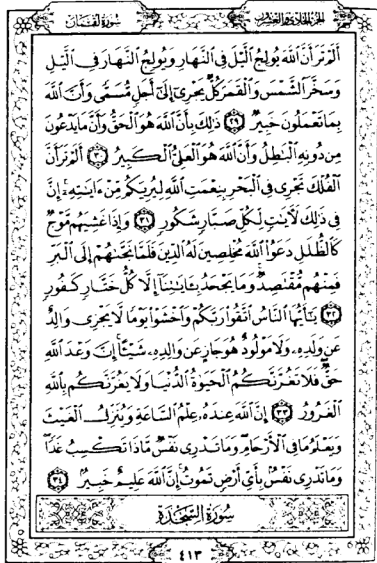 الجزء الحادي والعشرون سورة لقمان
أَلَمْ تَرَ أَنَّ ٱللَّهَ يُولِجُ ٱلَّيْلَ فِى ٱلنَّهَارِ وَيُولِجُ ٱلنَّهَارَ فِى ٱلَّيْلِ
وَسَخَّرَ ٱلشَّمْسَ وَٱلْقَمَرَ كُلٌّ يَجْرِىٓ إِلَىٰٓ أَجَلٍ مُّسَمًّى وَأَنَّ ٱللَّهَ
بِمَا تَعْمَلُونَ خَبِيرٌ ٢٩ ذَٰلِكَ بِأَنَّ ٱللَّهَ هُوَ ٱلْحَقُّ وَأَنَّ مَا يَدْعُونَ
مِن دُونِهِ ٱلْبَٰطِلُ وَأَنَّ ٱللَّهَ هُوَ ٱلْعَلِىُّ ٱلْكَبِيرُ ٣٠ أَلَمْ تَرَ أَنَّ
ٱلْفُلْكَ تَجْرِى فِى ٱلْبَحْرِ بِنِعْمَتِ ٱللَّهِ لِيُرِيَكُم مِّنْ ءَايَٰتِهِۦٓ إِنَّ
فِى ذَٰلِكَ لَءَايَٰتٍ لِّكُلِّ صَبَّارٍ شَكُورٍ ٣١ وَإِذَا غَشِيَهُم مَّوْجٌ
كَٱلظُّلَلِ دَعَوُا۟ ٱللَّهَ مُخْلِصِينَ لَهُ ٱلدِّينَ فَلَمَّا نَجَّىٰهُمْ إِلَى ٱلْبَرِّ
فَمِنْهُم مُّقْتَصِدٌ وَمَا يَجْحَدُ بِـَٔايَٰتِنَآ إِلَّا كُلُّ خَتَّارٍ كَفُورٍ
٣٢ يَٰٓأَيُّهَا ٱلنَّاسُ ٱتَّقُوا۟ رَبَّكُمْ وَٱخْشَوْا۟ يَوْمًا لَّا يَجْزِى وَالِدٌ
عَن وَلَدِهِۦ وَلَا مَوْلُودٌ هُوَ جَازٍ عَن وَالِدِهِۦ شَيْـًٔا إِنَّ وَعْدَ ٱللَّهِ
حَقٌّ فَلَا تَغُرَّنَّكُمُ ٱلْحَيَوٰةُ ٱلدُّنْيَا وَلَا يَغُرَّنَّكُم بِٱللَّهِ
ٱلْغَرُورُ ٣٣ إِنَّ ٱللَّهَ عِندَهُۥ عِلْمُ ٱلسَّاعَةِ وَيُنَزِّلُ ٱلْغَيْثَ
وَيَعْلَمُ مَا فِى ٱلْأَرْحَامِ وَمَا تَدْرِى نَفْسٌ مَّاذَا تَكْسِبُ غَدًا
وَمَا تَدْرِى نَفْسٌۢ بِأَىِّ أَرْضٍ تَمُوتُ إِنَّ ٱللَّهَ عَلِيمٌ خَبِيرٌۢ ٣٤
سُورَةُ السَّجْدَةِ
٤١٣